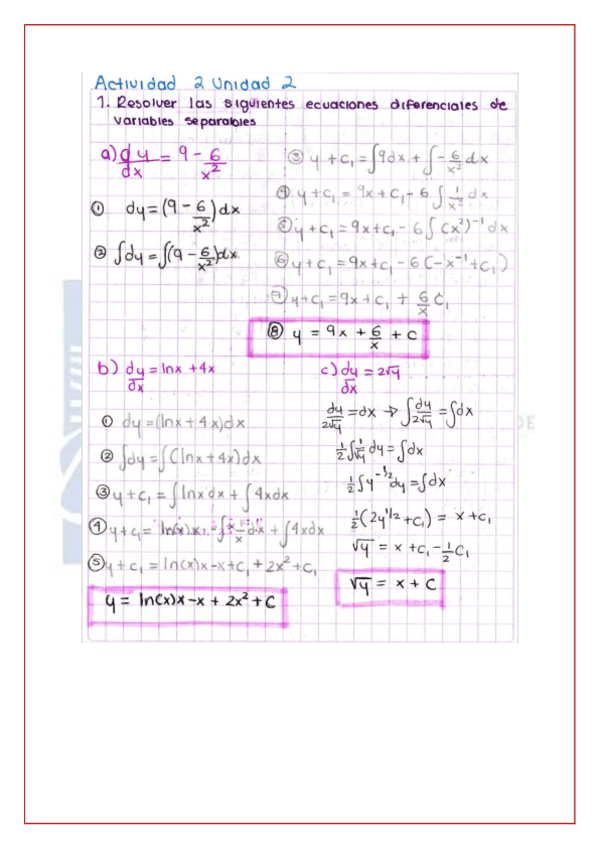 Actividad 2 Unidad 2
1. Resolver las siguientes ecuaciones diferenciales de
variables separables
a) dy/dx = 9 - 6/x²
① dy = (9 - 6/x²) dx
② ∫dy = ∫(9 - 6/x²)dx
③ y + c₁ = ∫9dx + ∫- 6/x² dx
④ y + c₁ = 9x + c₁ - 6 ∫ 1/x² dx
⑤ y + c₁ = 9x + c₁ - 6 ∫ (x²)⁻¹ dx
⑥ y + c₁ = 9x + c₁ - 6 (-x⁻¹ + c₁)
⑦ y + c₁ = 9x + c₁ + 6/x c₁
⑧ y = 9x + 6/x + c
b) dy/dx = lnx + 4x
① dy = (lnx + 4x)dx
② ∫dy = ∫(lnx + 4x)dx
③ y + c₁ = ∫lnxdx + ∫4xdx
④ y + c₁ = ln(x).x - ∫ x/x dx + ∫4xdx
⑤ y + c₁ = ln(x)x - x + c₁ + 2x² + c₁
y = ln(x)x - x + 2x² + C
c) dy/dx = 2√y
dy/2√y = dx → ∫dy/2√y = ∫dx
1/2 ∫ 1/√y dy = ∫dx
1/2 ∫ y^-1/2 dy = ∫dx
1/2 (2y^1/2 + c₁) = x + c₁
√y = x + c₁ - 1/2 c₁
√y = x + C
DE